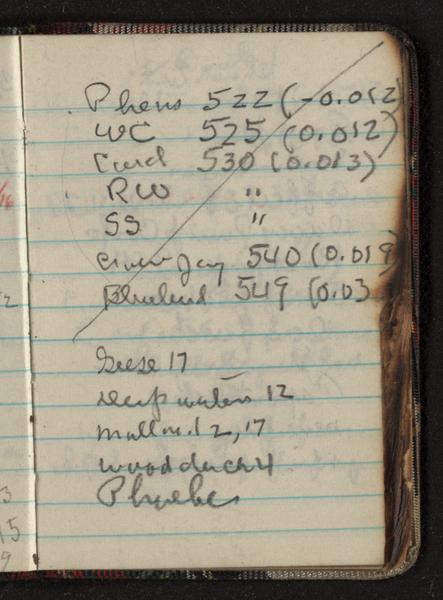 Phens 522 (-0.012
WC 525 (0.012)
Card 530 (0.013)
RW "
SS "
Jay 540 (0.019
Bluebird 549 (0.03
Geese 17
deep waters 12
Mallard 2, 17
wood duck 4
Phoebes